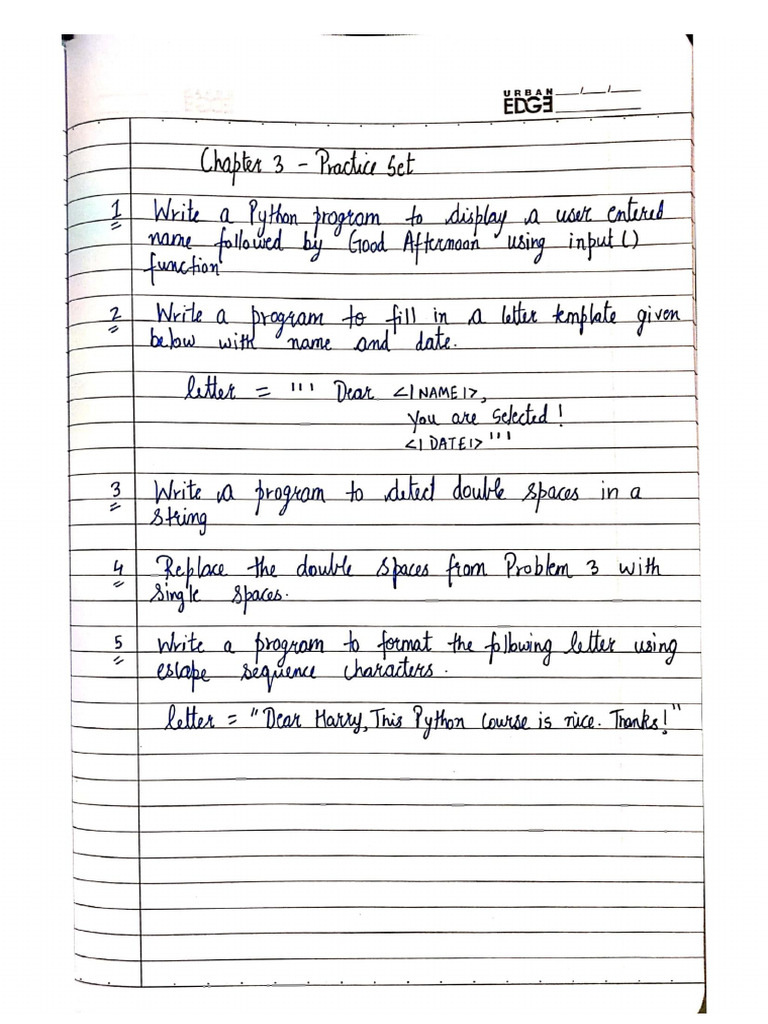 URBAN
EDGE
Chapter 3 - Practice Set
1 Write a Python program to display a user entered
name followed by Good Afternoon using input()
function
2 Write a program to fill in a letter template given
below with name and date.
letter = ''' Dear <|NAME|>,
You are selected!
<|DATE|> '''
3 Write a program to detect double spaces in a
string
4 Replace the double spaces from Problem 3 with
single spaces.
5 Write a program to format the following letter using
escape sequence characters.
letter = "Dear Harry, This Python course is nice. Thanks!"